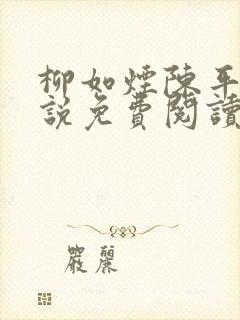 柳如煙陳平
說免費閱讀
嚴麗